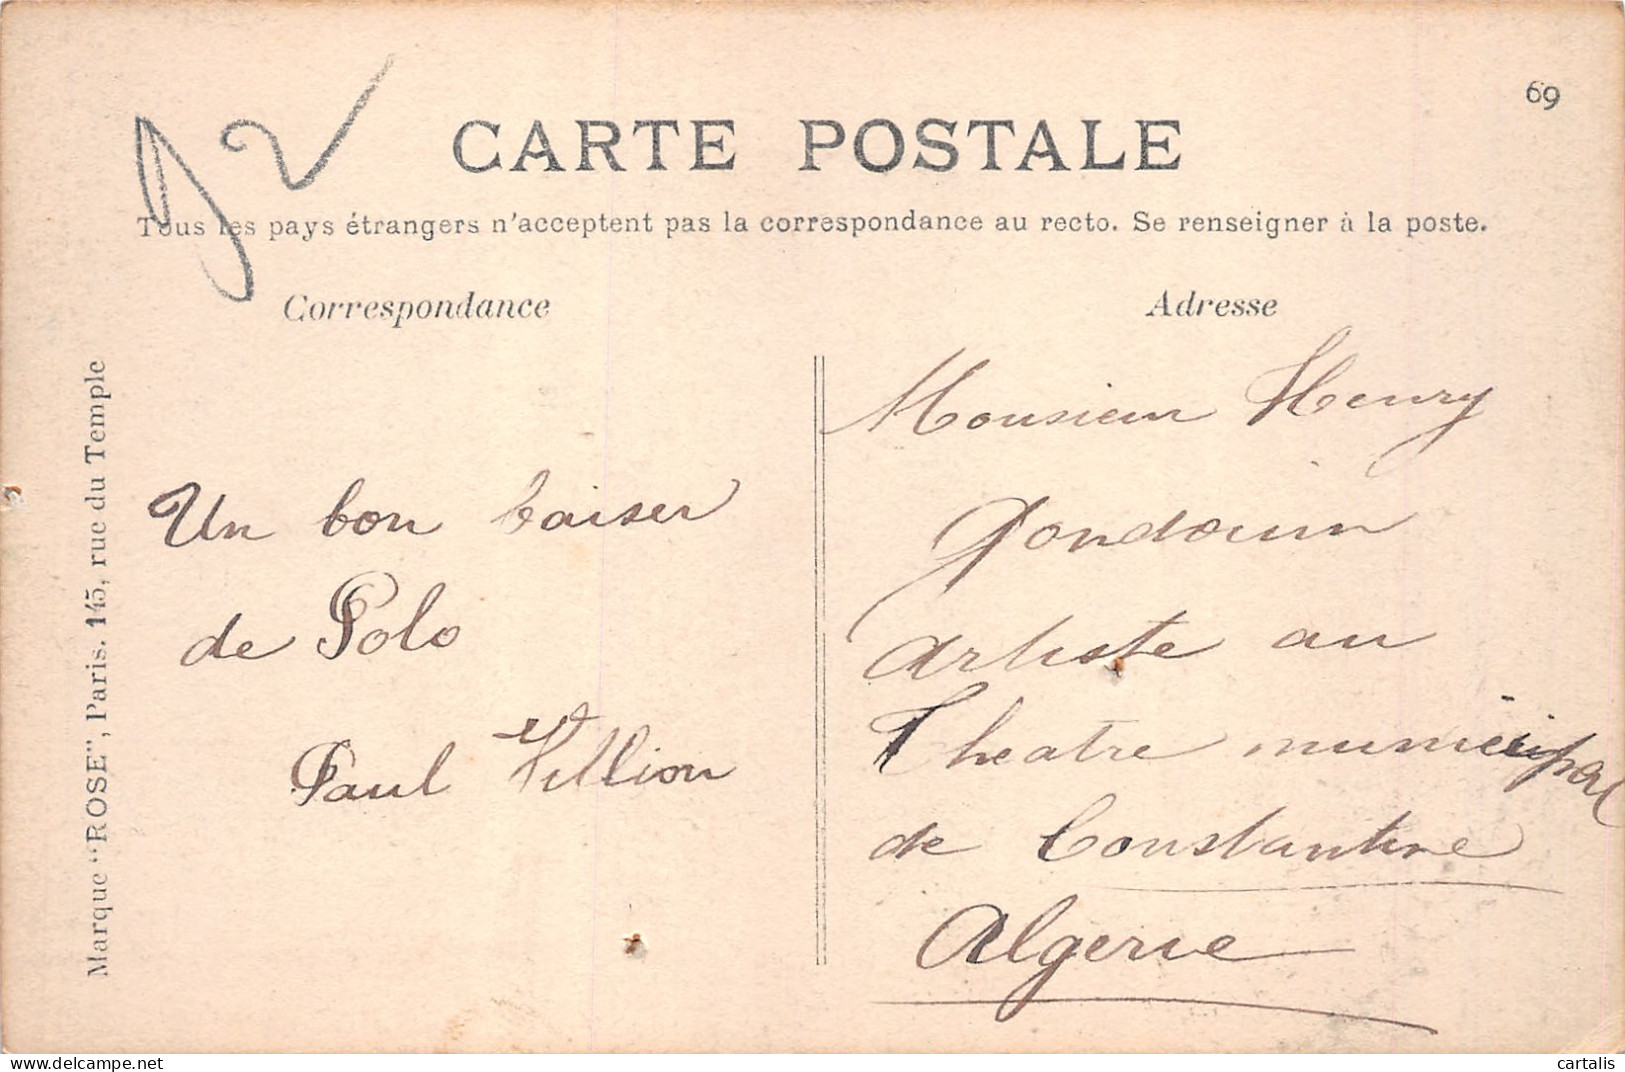 92
69
CARTE POSTALE
Tous les pays étrangers n'acceptent pas la correspondance au recto. Se renseigner à la poste.
Correspondance
Adresse
Marque "ROSE", Paris. 145, rue du Temple
Un bon baiser
de Polo
Paul Villion
Monsieur Henry
Gondouin
Artiste au
Theatre municipal
de Constantine
Algerie
cartalis